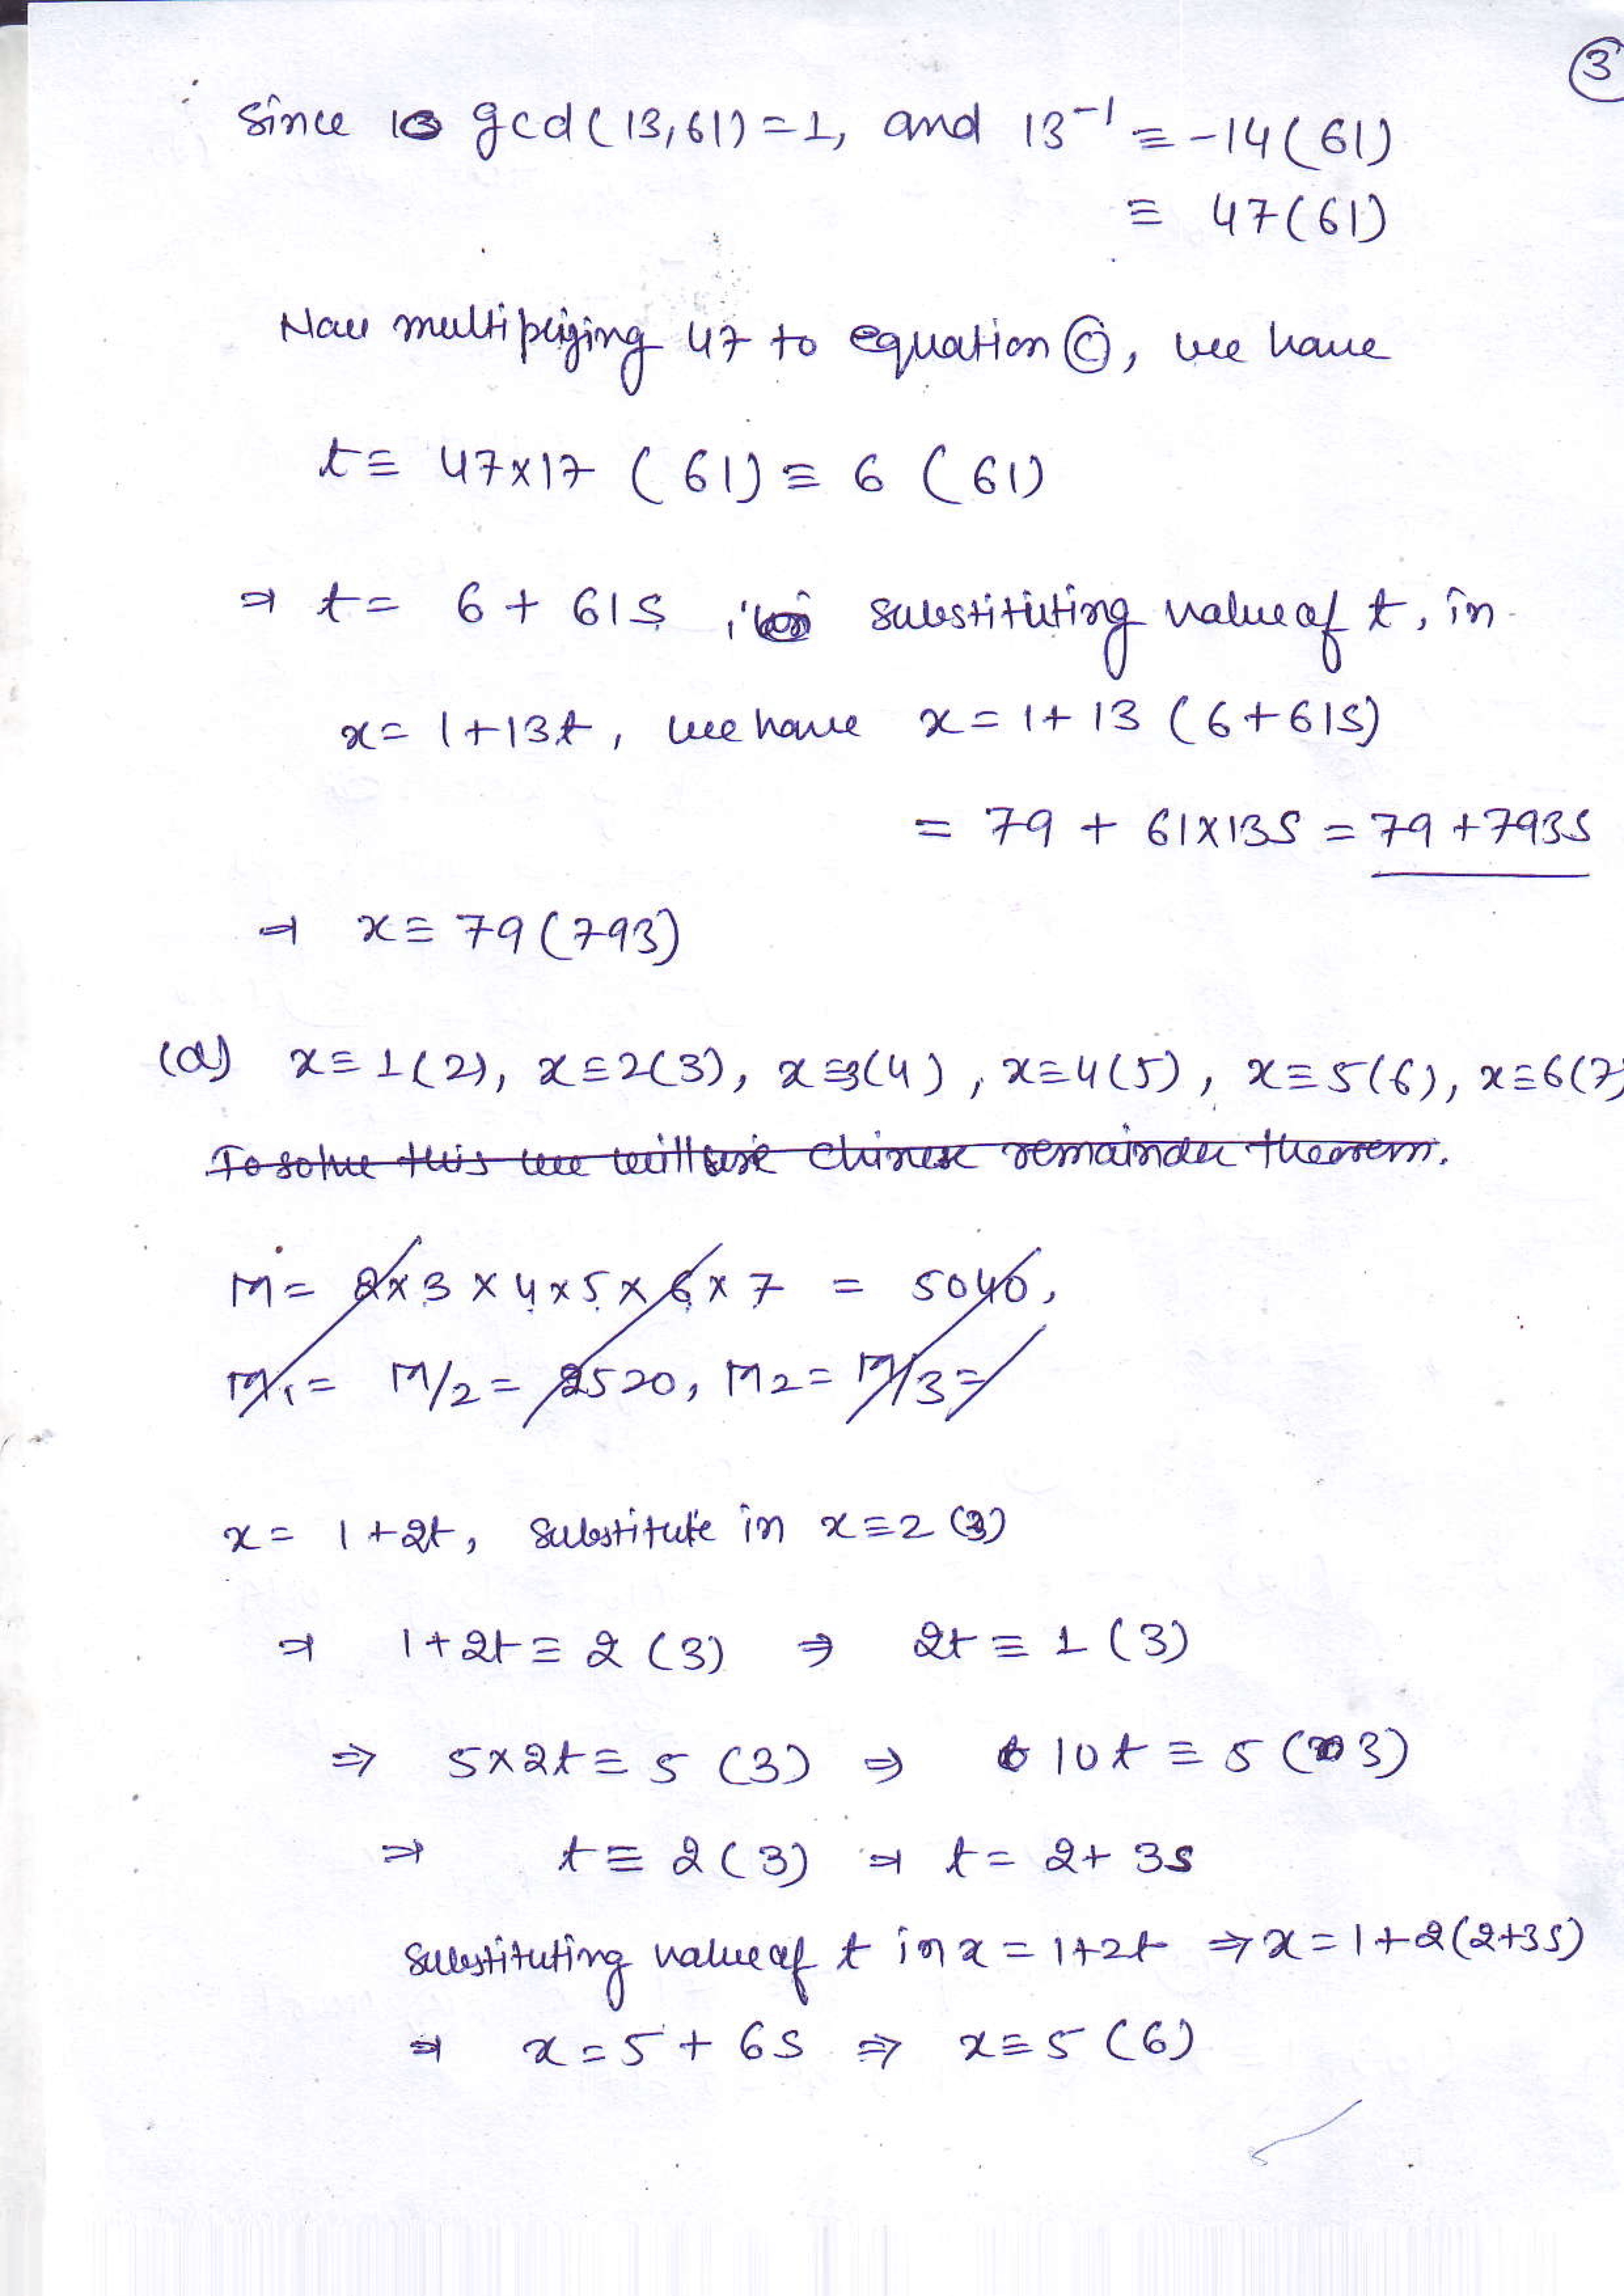 3
Since gcd(13,61)=1, and 13⁻¹ ≡ -14(61)
≡ 47(61)
Now multiplying 47 to equation ⓒ, we have
t≡ 47×17 (61) ≡ 6 (61)
⇒ t = 6 + 61s , substituting value of t, in
x = 1+13t, we have x = 1+ 13 (6+61s)
= 79 + 61×13s = 79 +793s
⇒ x ≡ 79(793)
(d) x≡1(2), x≡2(3), x≡3(4), x≡4(5), x≡5(6), x≡6(7)
To solve this we will use chinese remainder theorem.
M = 2×3×4×5×6×7 = 5040,
M₁ = M/2 = 2520, M₂ = M/3 =
x = 1+2t, substitute in x≡2 (3)
⇒ 1+2t ≡ 2 (3) ⇒ 2t ≡ 1 (3)
⇒ 5×2t ≡ 5 (3) ⇒ 10t ≡ 5 (3)
⇒ t ≡ 2(3) ⇒ t = 2+ 3s
Substituting value of t in x = 1+2t ⇒ x = 1+2(2+3s)
⇒ x = 5 + 6s ⇒ x≡5 (6)